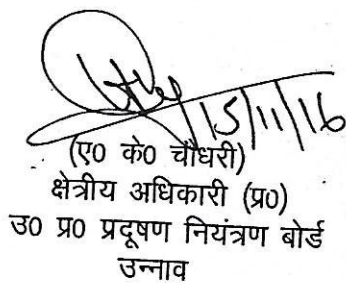 15/11/16
(ए0 के0 चौधरी)
क्षेत्रीय अधिकारी (प्र0)
उ0 प्र0 प्रदूषण नियंत्रण बोर्ड
उन्नाव